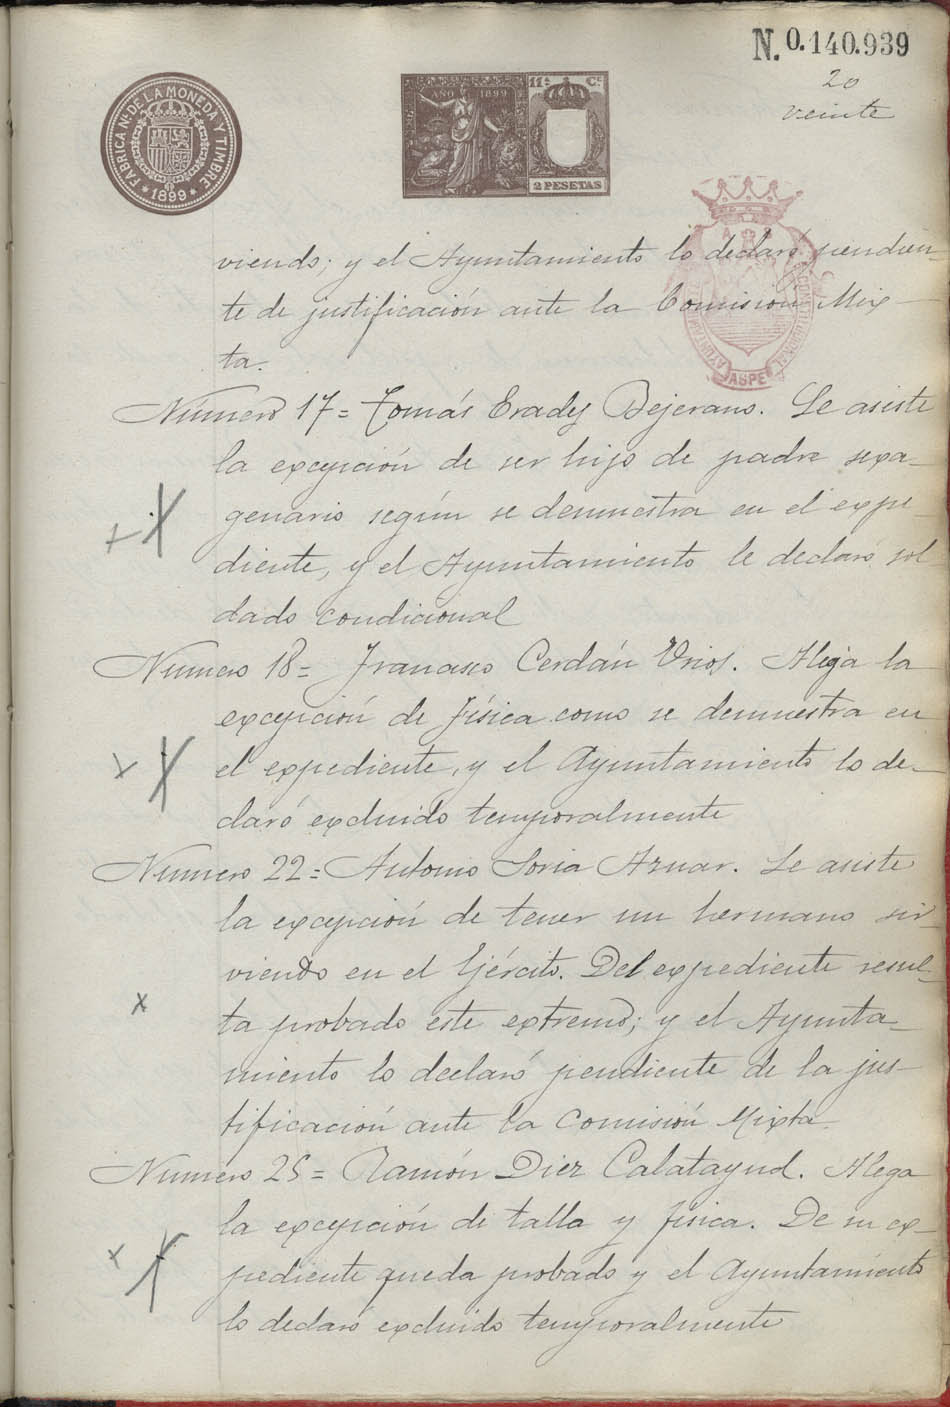 N. 0.140.939
20
veinte
FABRICA N.DE LA MONEDA Y TIMBRE
* 1899 *
AÑO 1899
11ª Cª
2 PESETAS
ASPE
viendo; y el Ayuntamiento lo declaró pendien-
te de justificación ante la Comisión Mix-
ta.
Número 17 = Tomás Erades Bejerano. Le asiste
la excepción de ser hijo de padre sexa-
genario según se demuestra en el expe-
diente, y el Ayuntamiento le declaró sol
dado condicional
Numero 18 = Francisco Cerdán Urios. Alega la
excepción de física como se demuestra en
el expediente, y el Ayuntamiento lo de-
claró excluido temporalmente
Numero 22 = Antonio Soria Aznar. Le asiste
la excepción de tener un hermano sir-
viendo en el Ejército. Del expediente resul-
ta probado este extremo; y el Ayunta-
miento lo declaró pendiente de la jus-
tificación ante la Comisión Mixta.
Numero 25 = Ramón Diez Calatayud. Alega
la excepción de talla y física. De su ex-
pediente queda probado y el Ayuntamiento
lo declaró excluido temporalmente